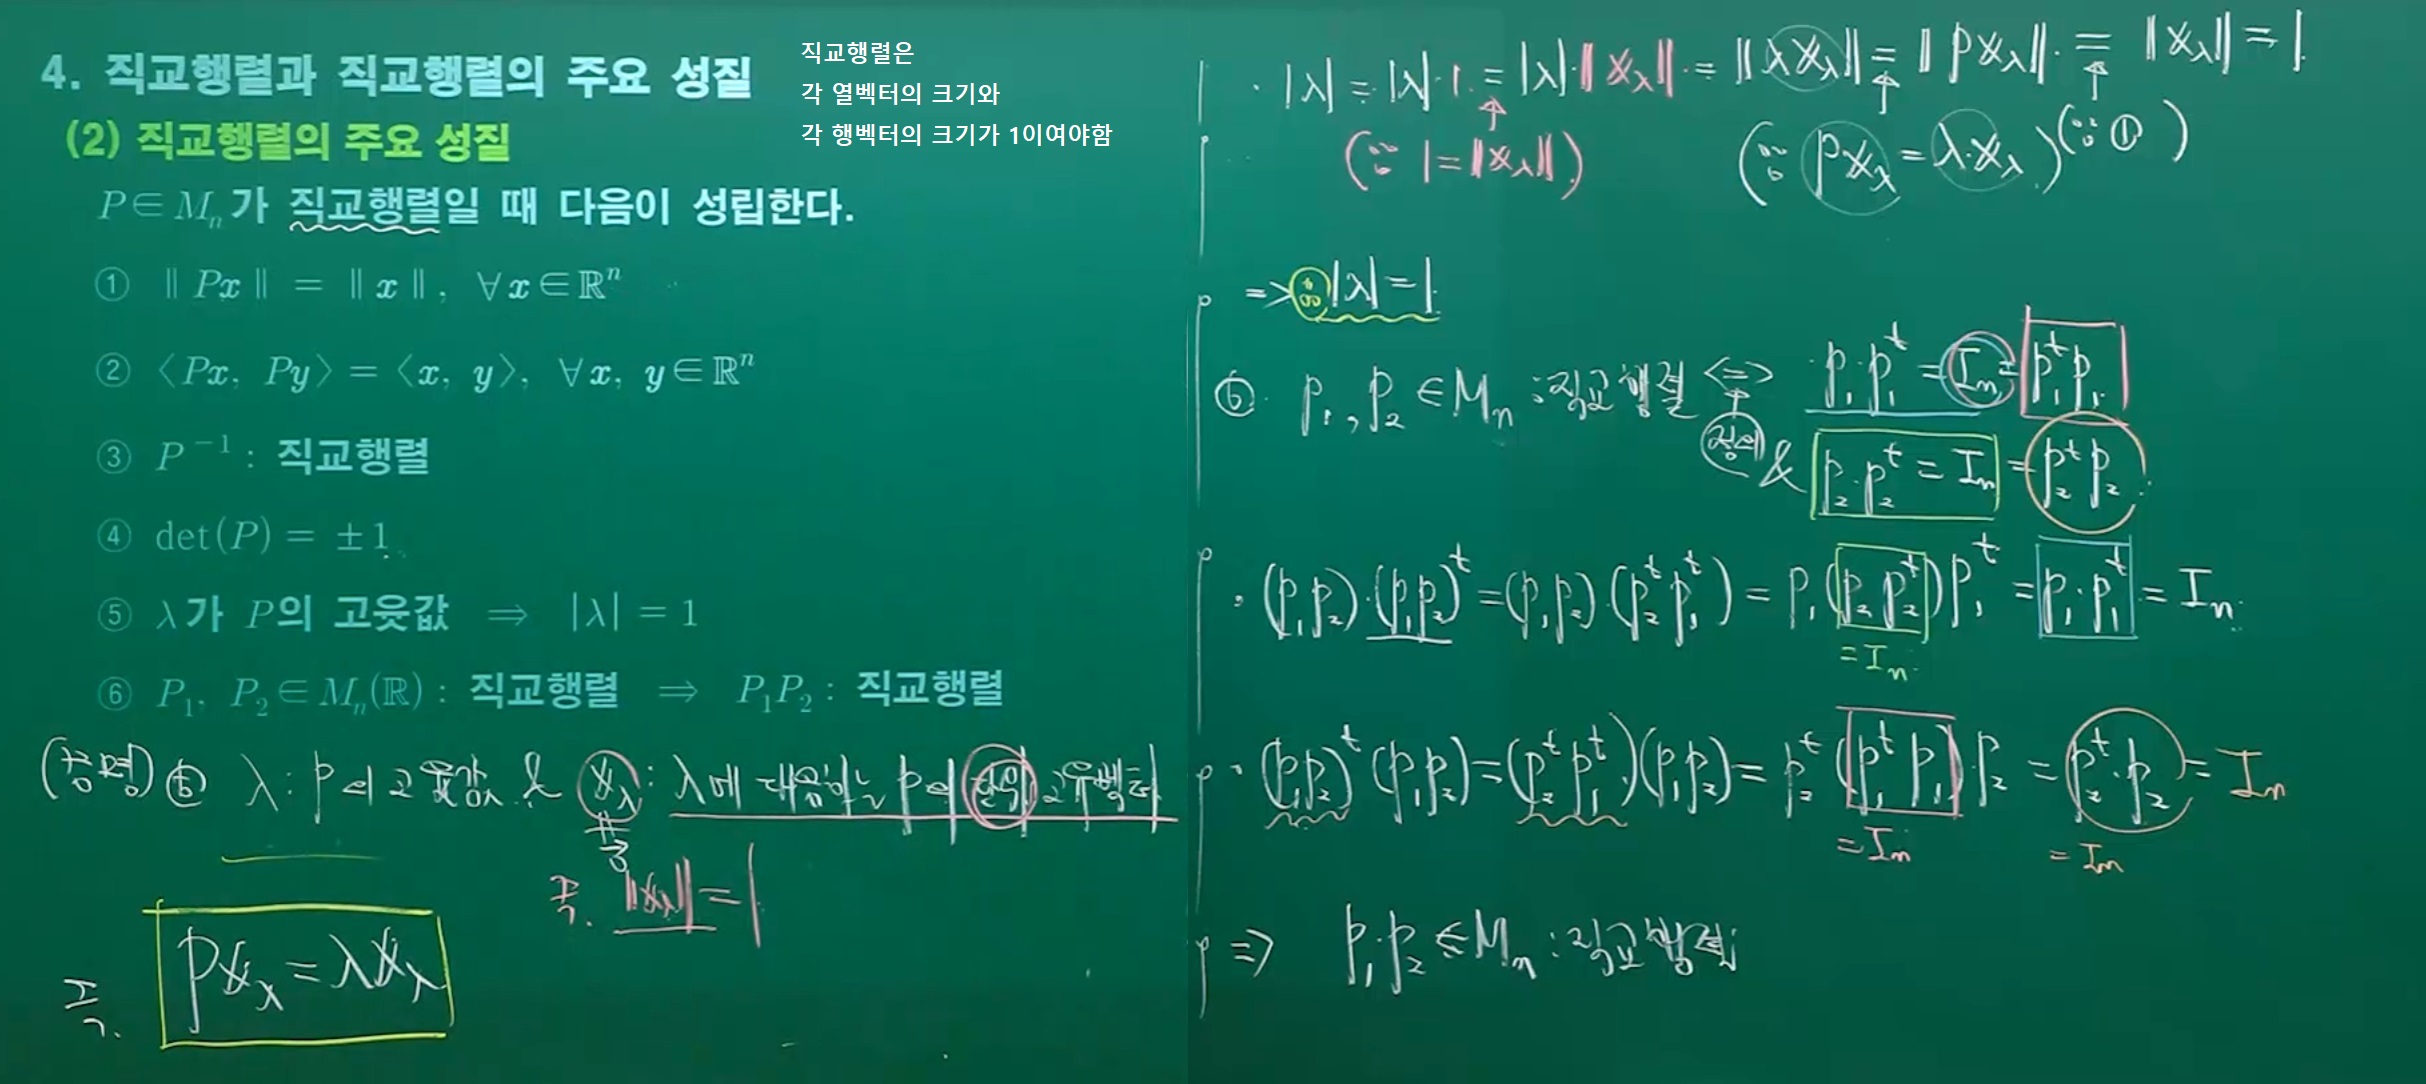 4. 직교행렬과 직교행렬의 주요 성질
직교행렬은
각 열벡터의 크기와
각 행벡터의 크기가 1이여야함
(2) 직교행렬의 주요 성질
P∈Mₙ가 직교행렬일 때 다음이 성립한다.
① ‖Px‖ = ‖x‖, ∀x∈ℝⁿ
② ⟨Px, Py⟩ = ⟨x, y⟩, ∀x, y∈ℝⁿ
③ P⁻¹ : 직교행렬
④ det(P) = ±1
⑤ λ가 P의 고윳값 ⇒ |λ| = 1
⑥ P₁, P₂∈Mₙ(ℝ) : 직교행렬 ⇒ P₁P₂ : 직교행렬
(증명) ⑤ λ : P의 고윳값 & x_λ : λ에 대응하는 P의 단위고유벡터
∦
즉. ‖x_λ‖ = 1
즉. Px_λ = λx_λ
· |λ| = |λ|·1 = |λ|·‖x_λ‖ = ‖λx_λ‖ = ‖Px_λ‖ = ‖x_λ‖ = 1
(∵ 1 = ‖x_λ‖) (∵ Px_λ = λ·x_λ) (∵ ①)
⇒ ∴ |λ| = 1
⑥ P₁, P₂ ∈ Mₙ : 직교행렬 ⇔ P₁·P₁ᵗ = Iₙ = P₁ᵗP₁
정의 & P₂·P₂ᵗ = Iₙ = P₂ᵗP₂
· (P₁P₂)·(P₁P₂)ᵗ = (P₁P₂)·(P₂ᵗP₁ᵗ) = P₁(P₂P₂ᵗ)P₁ᵗ = P₁·P₁ᵗ = Iₙ
= Iₙ
· (P₁P₂)ᵗ(P₁P₂) = (P₂ᵗP₁ᵗ)(P₁P₂) = P₂ᵗ(P₁ᵗP₁)·P₂ = P₂ᵗ·P₂ = Iₙ
= Iₙ = Iₙ
⇒ P₁·P₂ ∈ Mₙ : 직교행렬